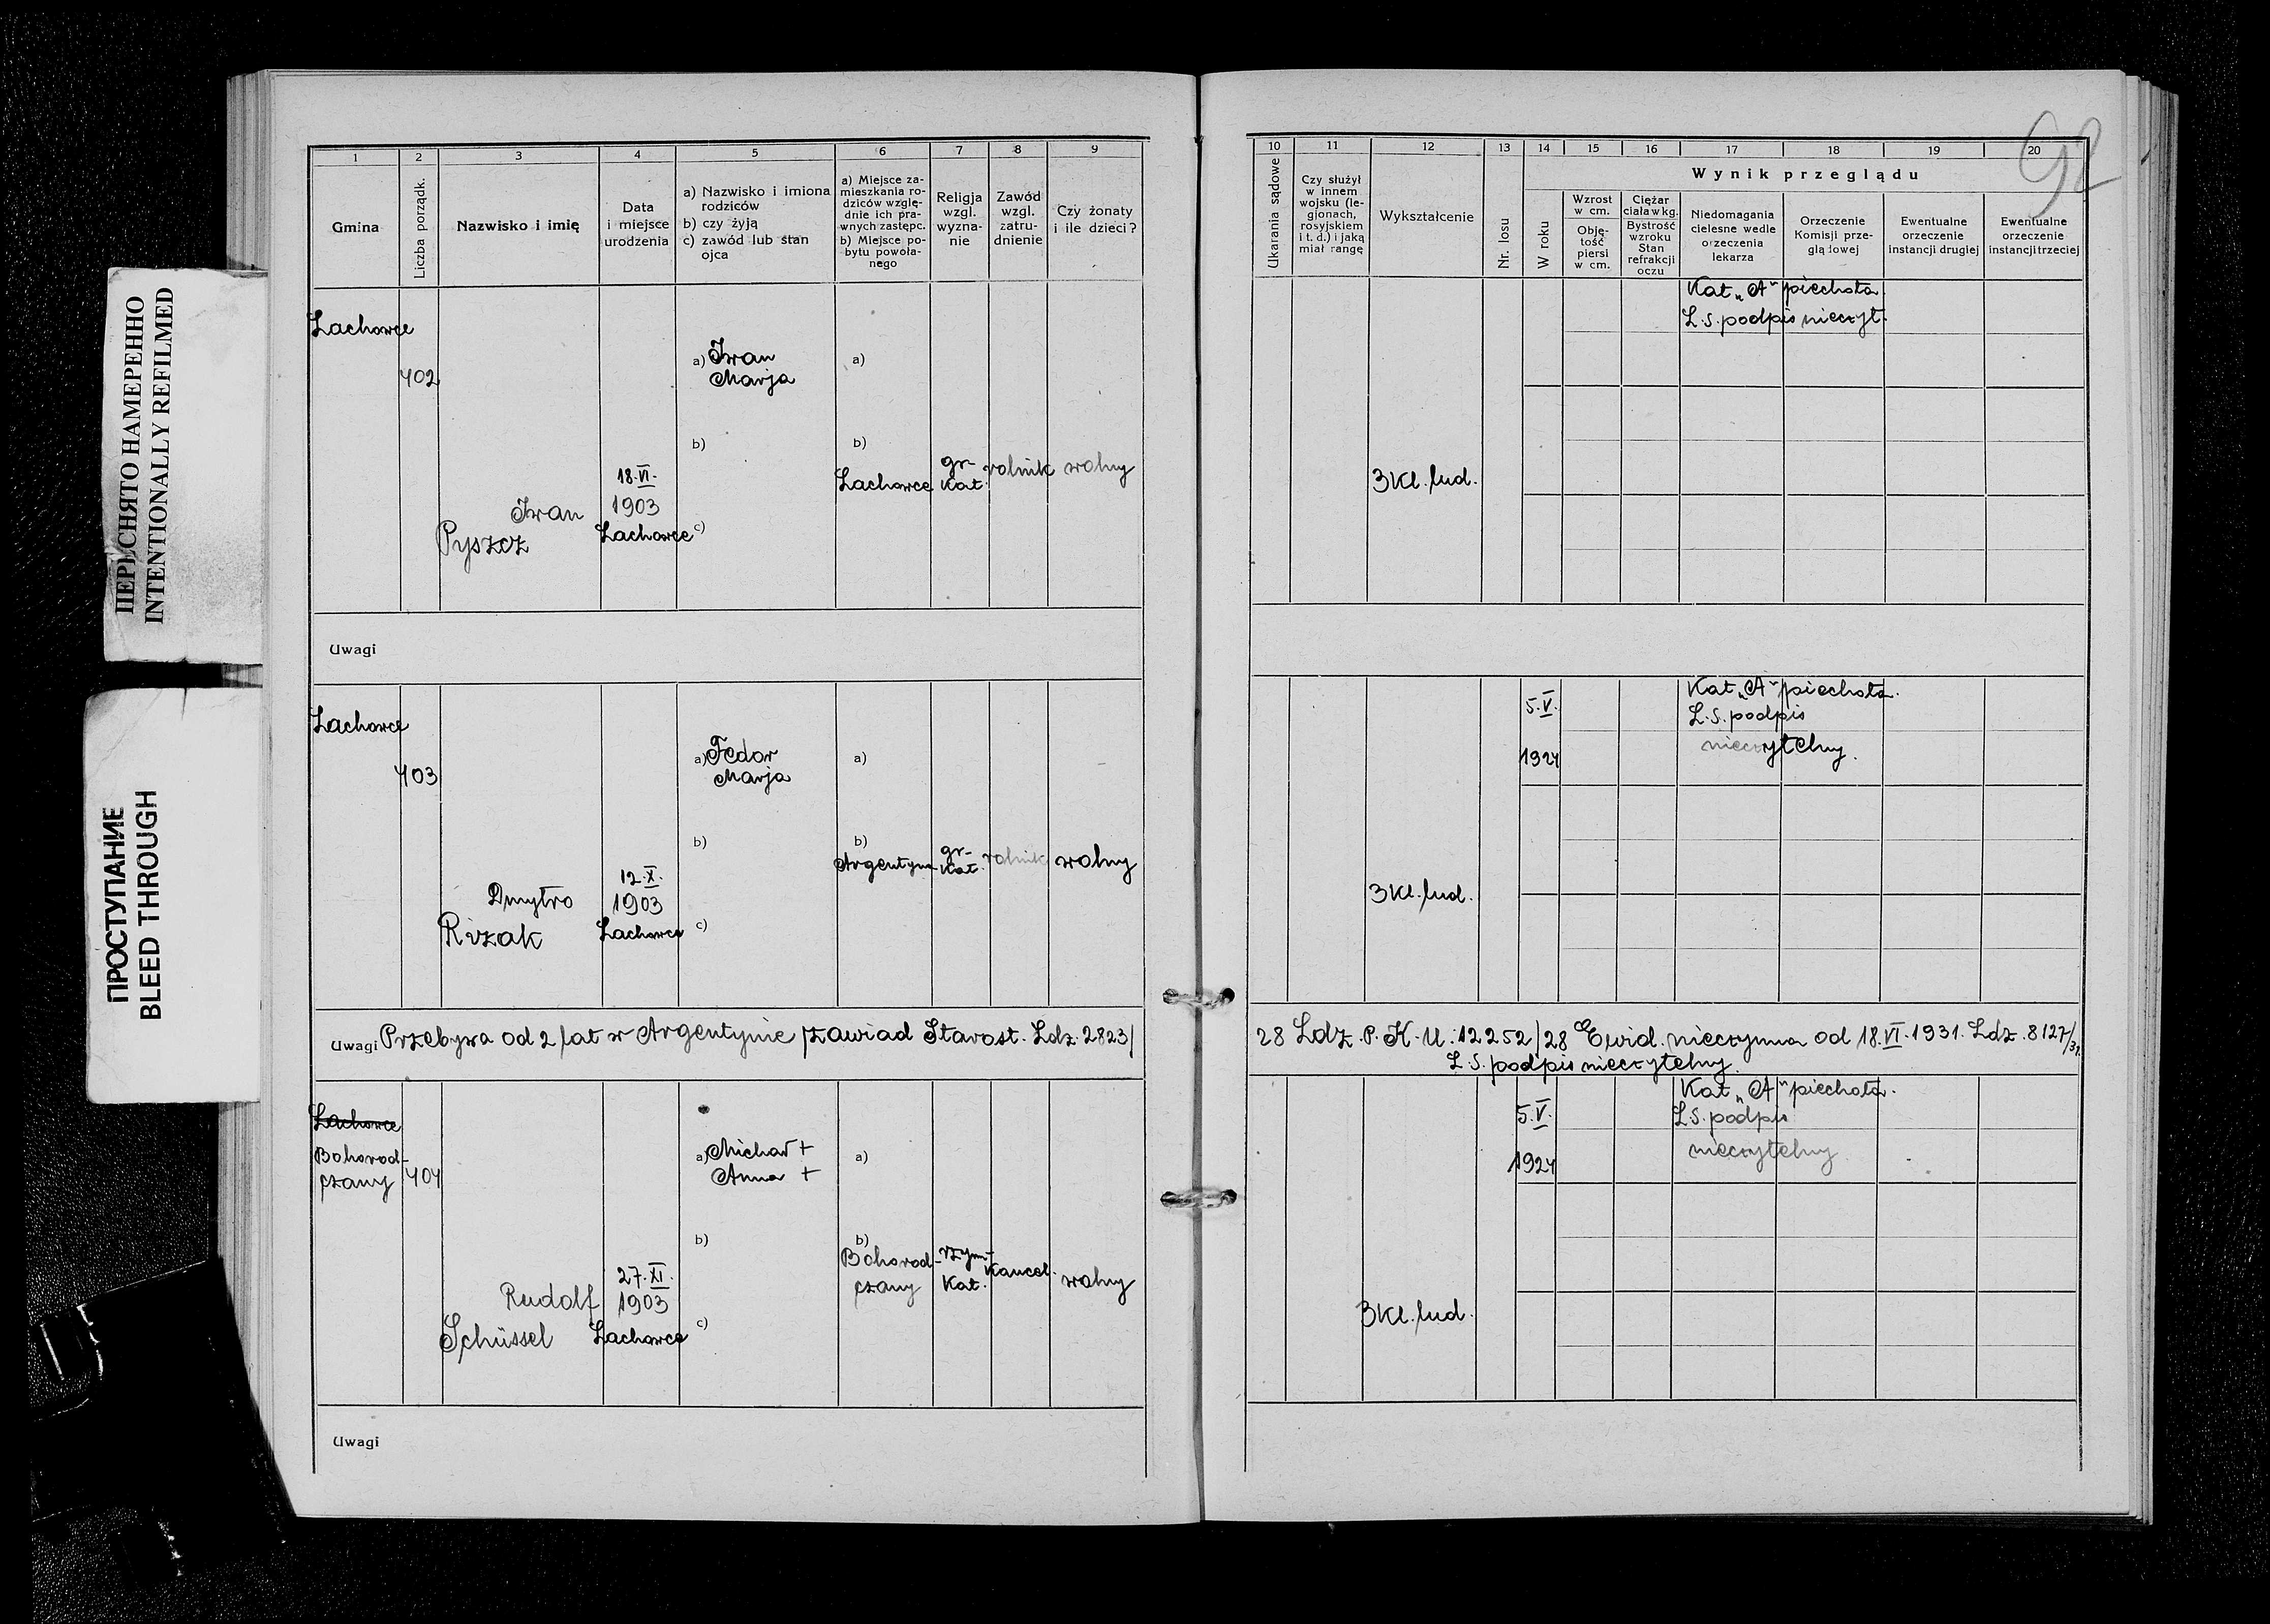 ПЕРЕСНЯТО НАМЕРЕННО
INTENTIONALLY REFILMED
ПРОСТУПАНИЕ
BLEED THROUGH
1 2 3 4 5 6 7 8 9
Gmina
Liczba porządk.
Nazwisko i imię
Data
i miejsce
urodzenia
a) Nazwisko i imiona
rodziców
b) czy żyją
c) zawód lub stan
ojca
a) Miejsce za-
mieszkania ro-
dziców wzglę-
dnie ich pra-
wnych zastępc.
b) Miejsce po-
bytu powoła-
nego
Religja
wzgl.
wyzna-
nie
Zawód
wzgl.
zatru-
dnienie
Czy żonaty
i ile dzieci?
Lachowce
402
Iwan
Pyszcz
18.VI.
1903
Lachowce
a) Iwan
Marja
b)
c)
a)
b)
Lachowce
gr-
kat.
rolnik
wolny
Uwagi
Lachowce
403
Dmytro
Rizak
12.X.
1903
Lachowce
a) Fedor
Marja
b)
c)
a)
b)
Argentyna
gr-
kat.
rolnik
wolny
Uwagi Przebywa od 2 lat w Argentynie /zawiad Starost. Ldz. 2823/
Lachowce
Bohorod-
czany
404
Rudolf
Schüssel
27.XI.
1903
Lachowce
a) Michał +
Anna +
b)
c)
a)
b)
Bohorod-
czany
rzym-
kat.
kancel.
wolny
Uwagi
92
10 11 12 13 14 15 16 17 18 19 20
Ukarania sądowe
Czy służył
w innem
wojsku (le-
gjonach,
rosyjskiem
i t. d.) i jaką
miał rangę
Wykształcenie
Nr. losu
Wynik przeglądu
W roku
Wzrost
w cm.
Obję-
tość
piersi
w cm.
Ciężar
ciała w kg.
Bystrość
wzroku
Stan
refrakcji
oczu
Niedomagania
cielesne wedle
orzeczenia
lekarza
Orzeczenie
Komisji prze-
glądowej
Ewentualne
orzeczenie
instancji drugiej
Ewentualne
orzeczenie
instancji trzeciej
Kat „A" piechota.
L.S. podpis nieczyt.
3 kl. lud.
5.V.
1924
Kat „A" piechota.
L.S. podpis
nieczytelny.
3 kl. lud.
28 Ldz. P.K.U.: 12252/28 Ewid. nieczynna od 18.VI.1931. Ldz. 8127/31.
L.S. podpis nieczytelny.
5.V.
1924
Kat „A" piechota.
L.S. podpis
nieczytelny
3 kl. lud.